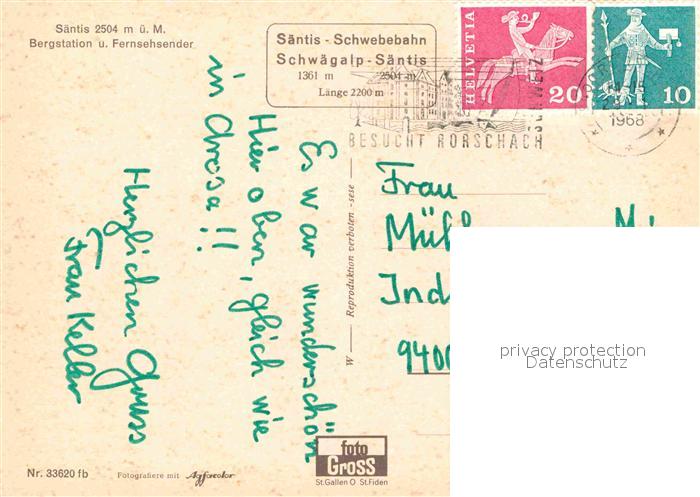 Säntis 2504 m ü. M.
Bergstation u. Fernsehsender
Säntis - Schwebebahn
Schwägalp - Säntis
1361 m 2504 m
Länge 2200 m
HELVETIA
20
10
1968
SCHWEIZ
BESUCHT RORSCHACH
Es war wunderschön
Hier oben, gleich wie
in Arosa!!
Herzlichen Gruss
Frau Keller
W — Reproduktion verboten - sese —
Frau
Mühl
Ind
9400
privacy protection
Datenschutz
foto
Gross
St.Gallen O St.Fiden
Nr. 33620 fb
Fotografiere mit Agfacolor